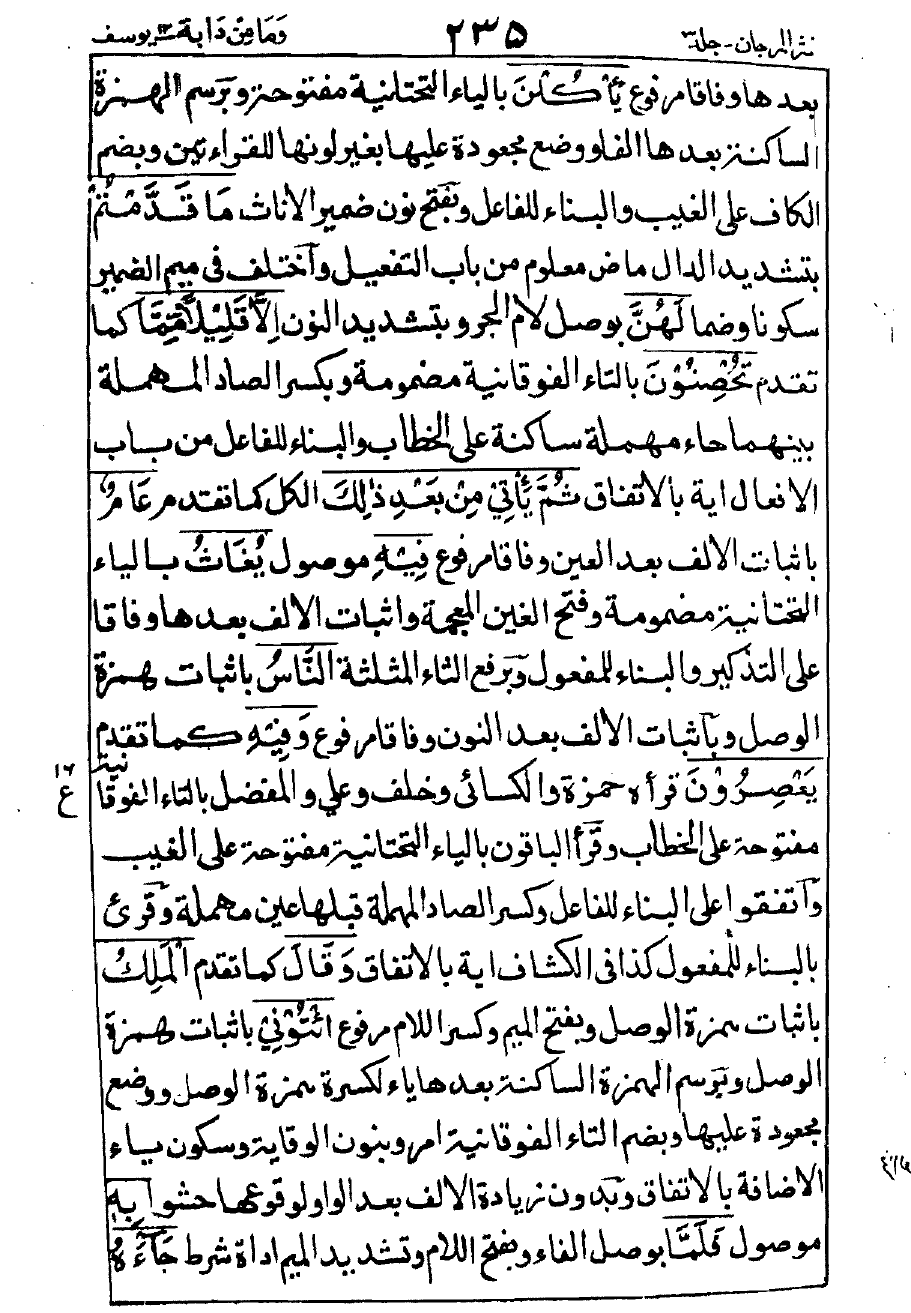 نثر المرجان - جلد ٣ ٢٣٥ وَمَا مِنْ دَابة ١٢ يوسف
بعدها وفاقا مرفوع يَأْكُلْنَ بالياء التحتانية مفتوحة وبرسم الهمزة
الساكنة بعدها الفا ووضع مجعودة عليها بغير لونها للقراءتين وبضم
الكاف على الغيب والبناء للفاعل وبفتح نون ضمير الاناث مَا قَدَّمْتُمْ
بتشديد الدال ماض معلوم من باب التفعيل واختلف فى ميم الضمير
سكونا وضما لَهُنَّ بوصل لام الجر وبتشديد النون اِلَّا قَلِيْلًا مِّمَّا كما
تقدم تُحْصِنُوْنَ بالتاء الفوقانية مضمومة وبكسر الصاد المهملة
بينهما حاء مهملة ساكنة على الخطاب والبناء للفاعل من باب
الافعال اية بالاتفاق ثُمَّ يَأْتِيْ مِنْ بَعْدِ ذٰلِكَ الكل كما تقدم عَامٌ
باثبات الالف بعد العين وفاقا مرفوع فِيْهِ موصول يُغَاثُ بالياء
التحتانية مضمومة وفتح الغين المعجمة واثبات الالف بعدها وفاقا
على التذكير والبناء للمفعول وبرفع الثاء المثلثة النَّاسُ باثبات همزة
الوصل وباثبات الالف بعد النون وفاقا مرفوع وَفِيْهِ كما تقدم
يَعْصِرُوْنَ قرأه حمزة والكسائى وخلف وعلي والمفضل بالتاء الفوقانية
١٦
ع
مفتوحة على الخطاب وقرأ الباقون بالياء التحتانية مفتوحة على الغيب
واتفقوا على البناء للفاعل وكسر الصاد المهملة قبلها عين مهملة وقرئ
بالبناء للمفعول كذا فى الكشاف اية بالاتفاق وَقَالَ كما تقدم الْمَلِكُ
باثبات همزة الوصل وبفتح الميم وكسر اللام مرفوع ائْتُوْنِيْ باثبات همزة
الوصل وبرسم الهمزة الساكنة بعدها ياء لكسرة همزة الوصل ووضع
مجعودة عليها وبضم التاء الفوقانية امر وبنون الوقاية وسكون ياء
الاضافة بالاتفاق وبدون زيادة الالف بعد الواو لوقوعها حشوا بِهٖ
موصول فَلَمَّا بوصل الفاء وبفتح اللام وتشديد الميم اداة شرط جَآءَهُ